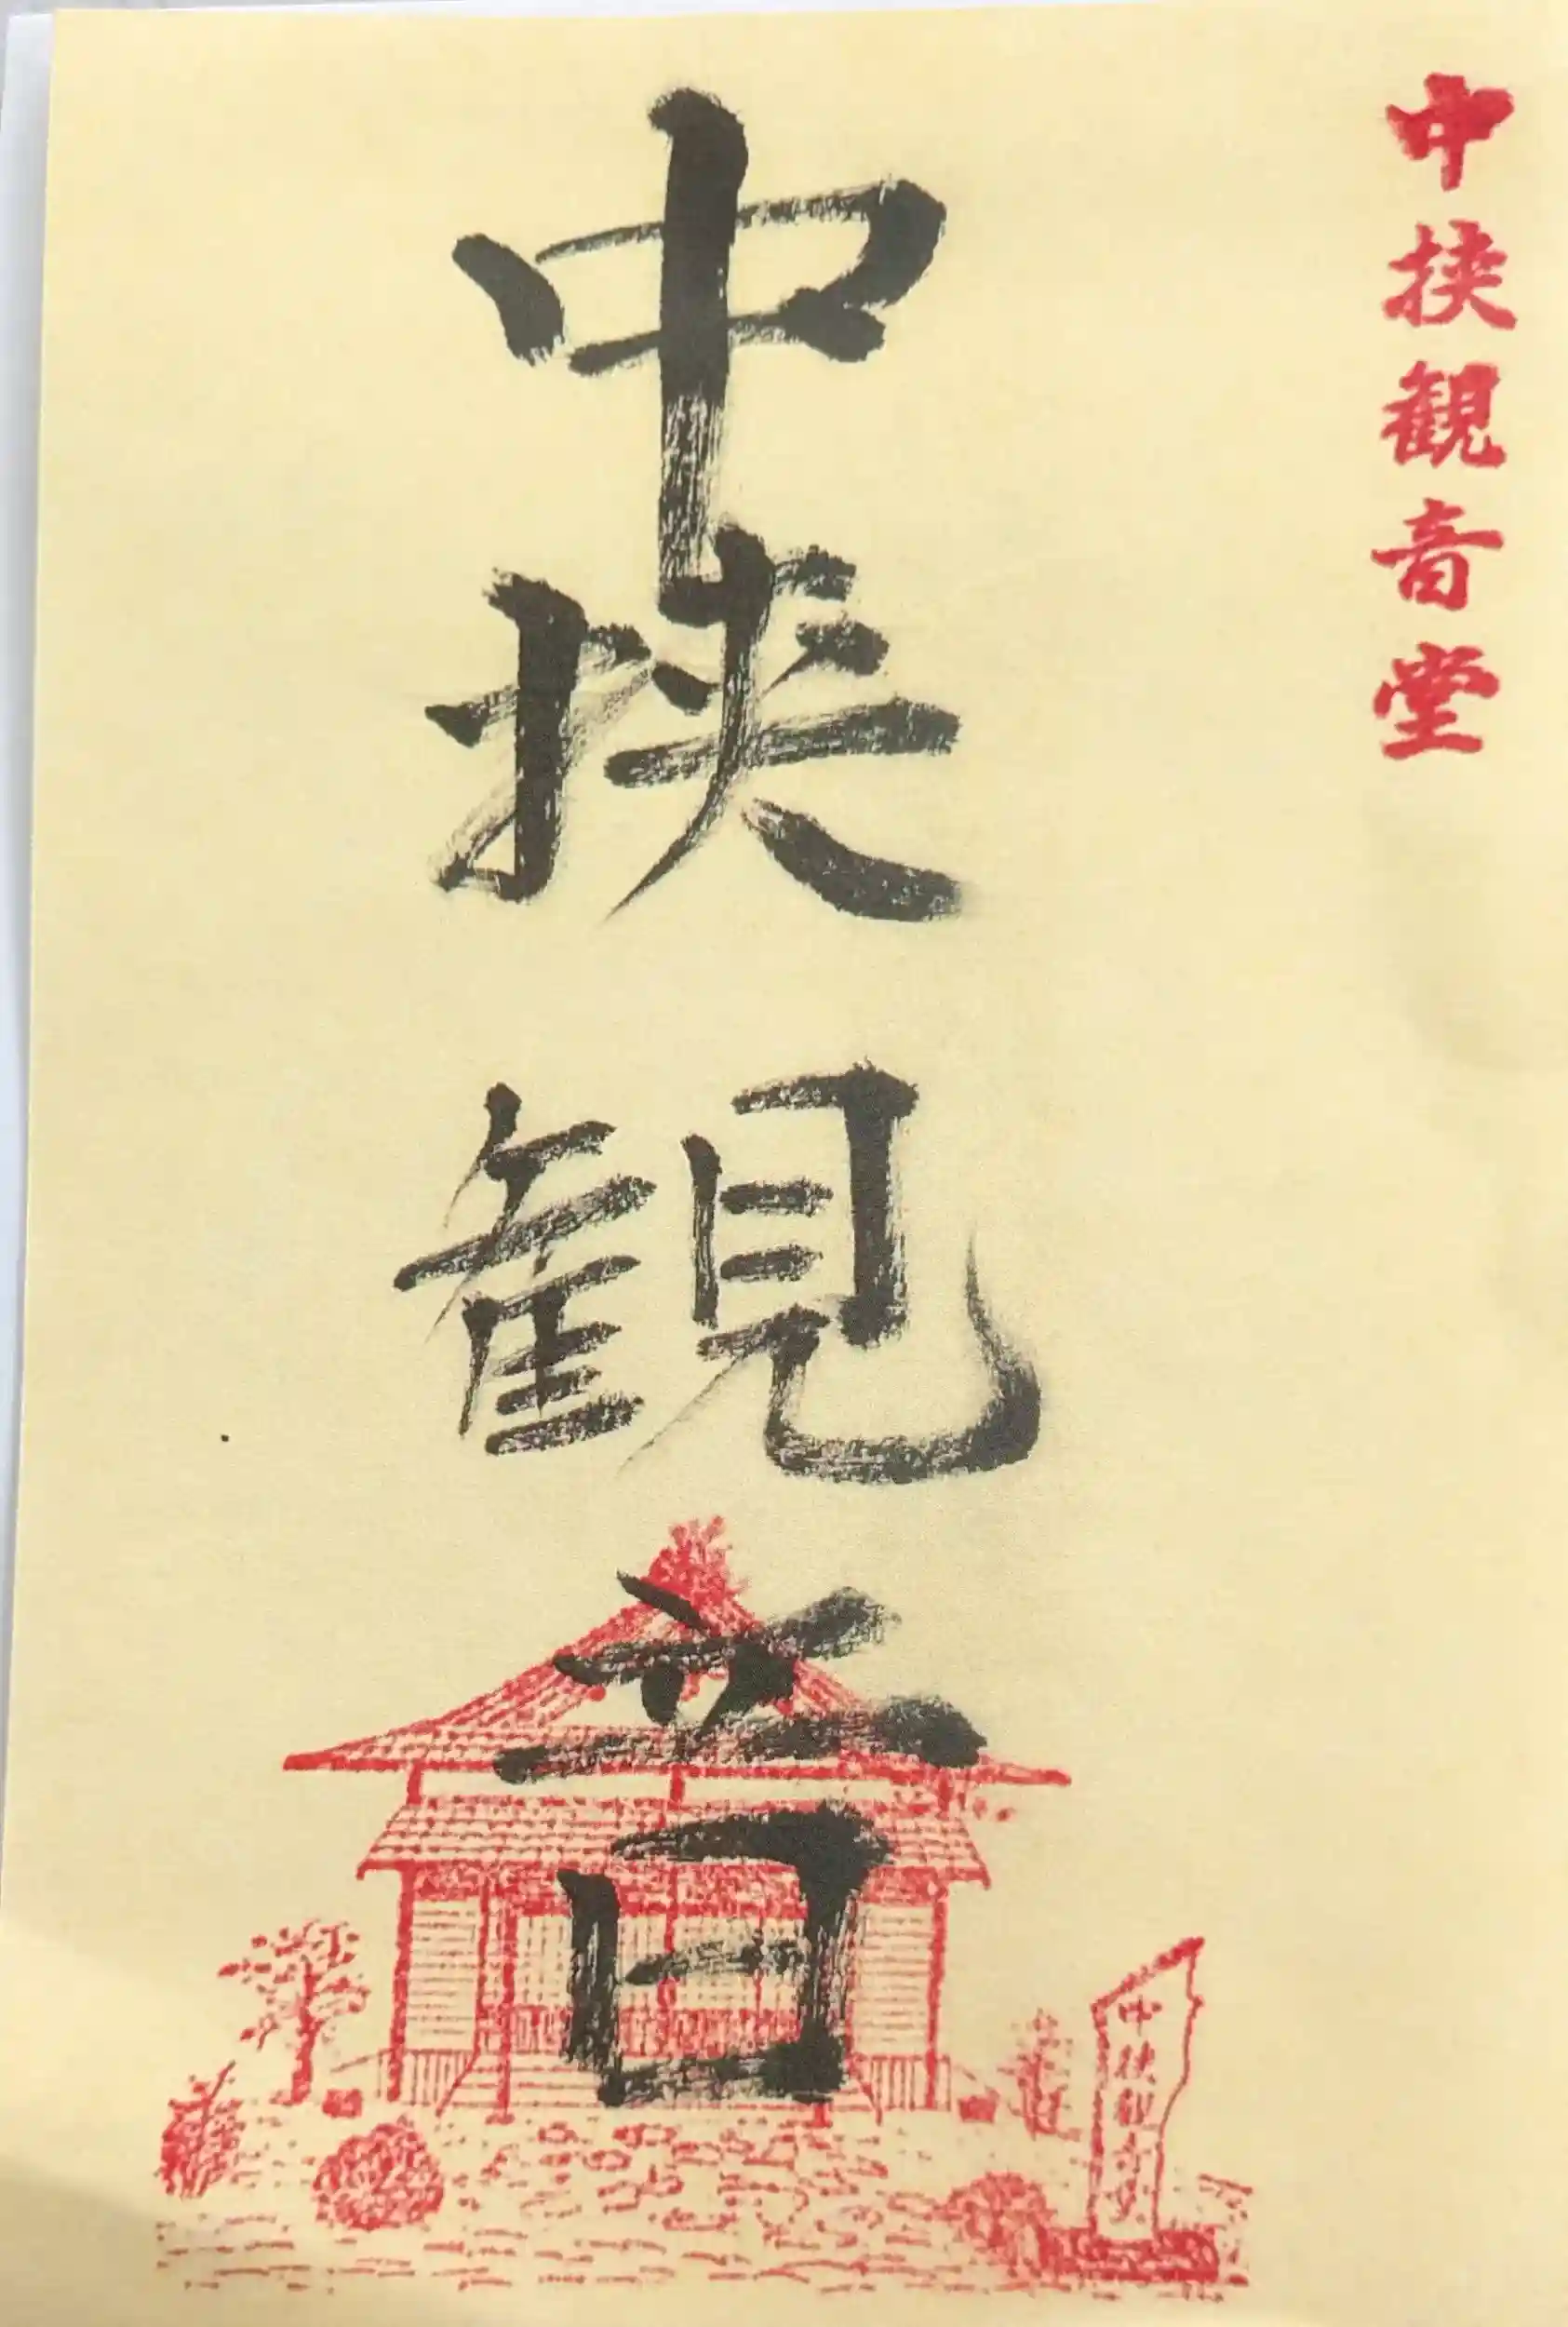 中挟観音堂
中挟観音
中挟観音堂